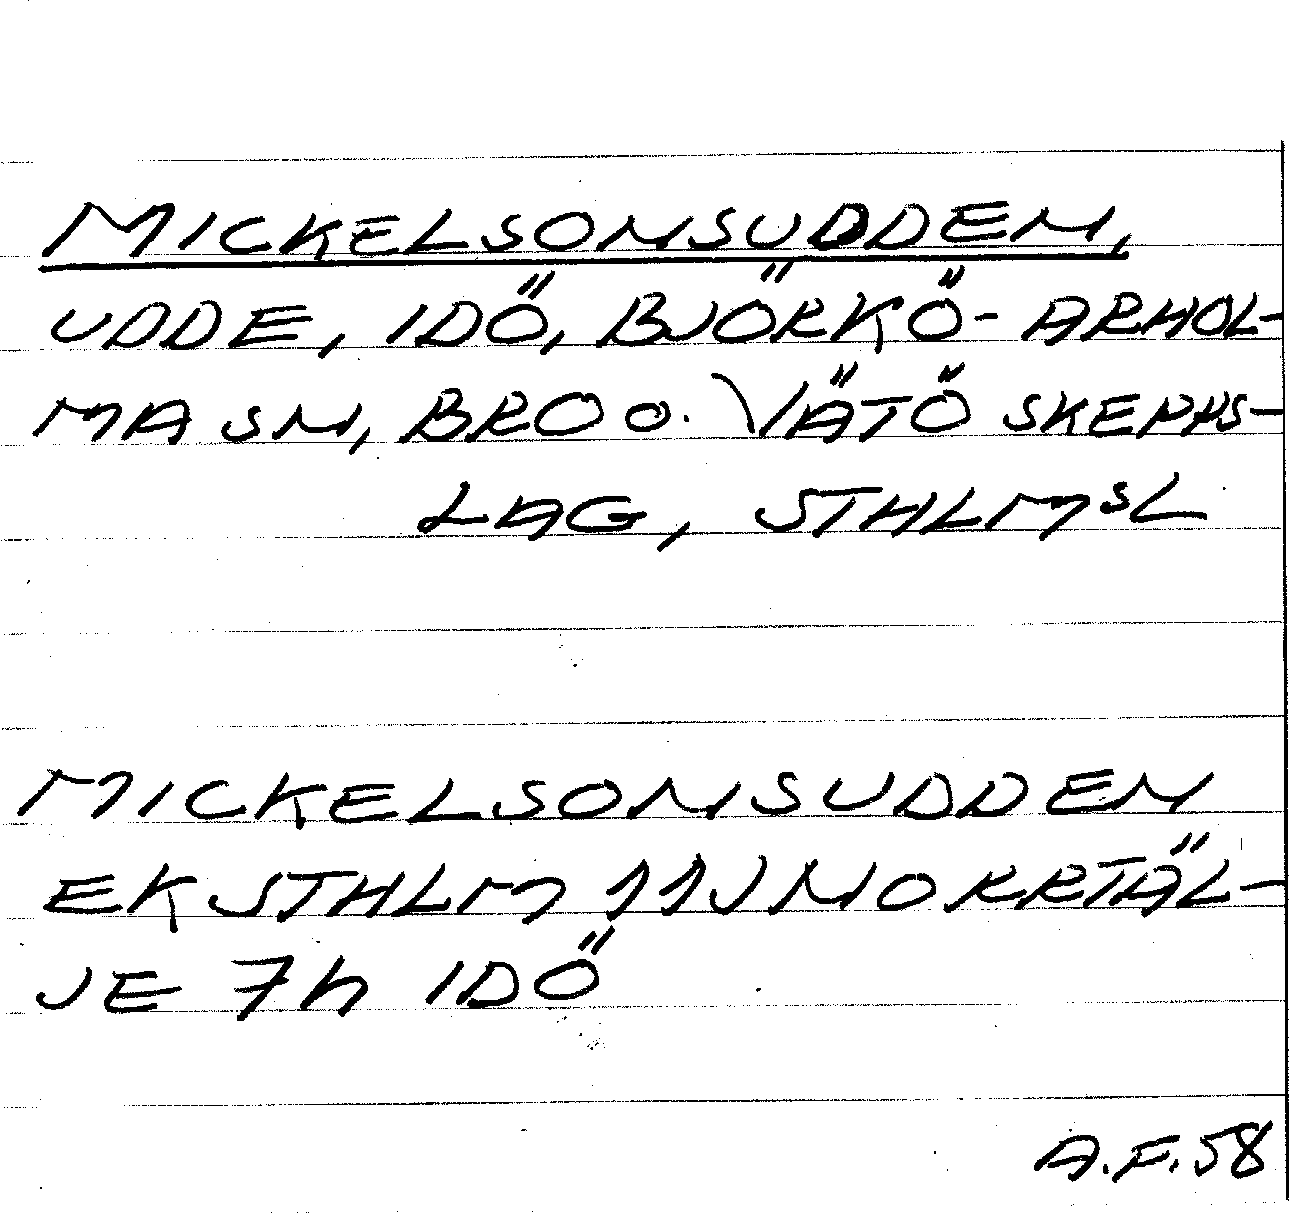 MICKELSONSUDDEN,
UDDE, IDÖ, BJÖRKÖ-ARHOL-
MA SN, BRO O. VÄTÖ SKEPPS-
LAG, STHLMSL
MICKELSONSUDDEN
EK STHLM 11J NORRTÄL-
JE 7h IDÖ
A.F. 58